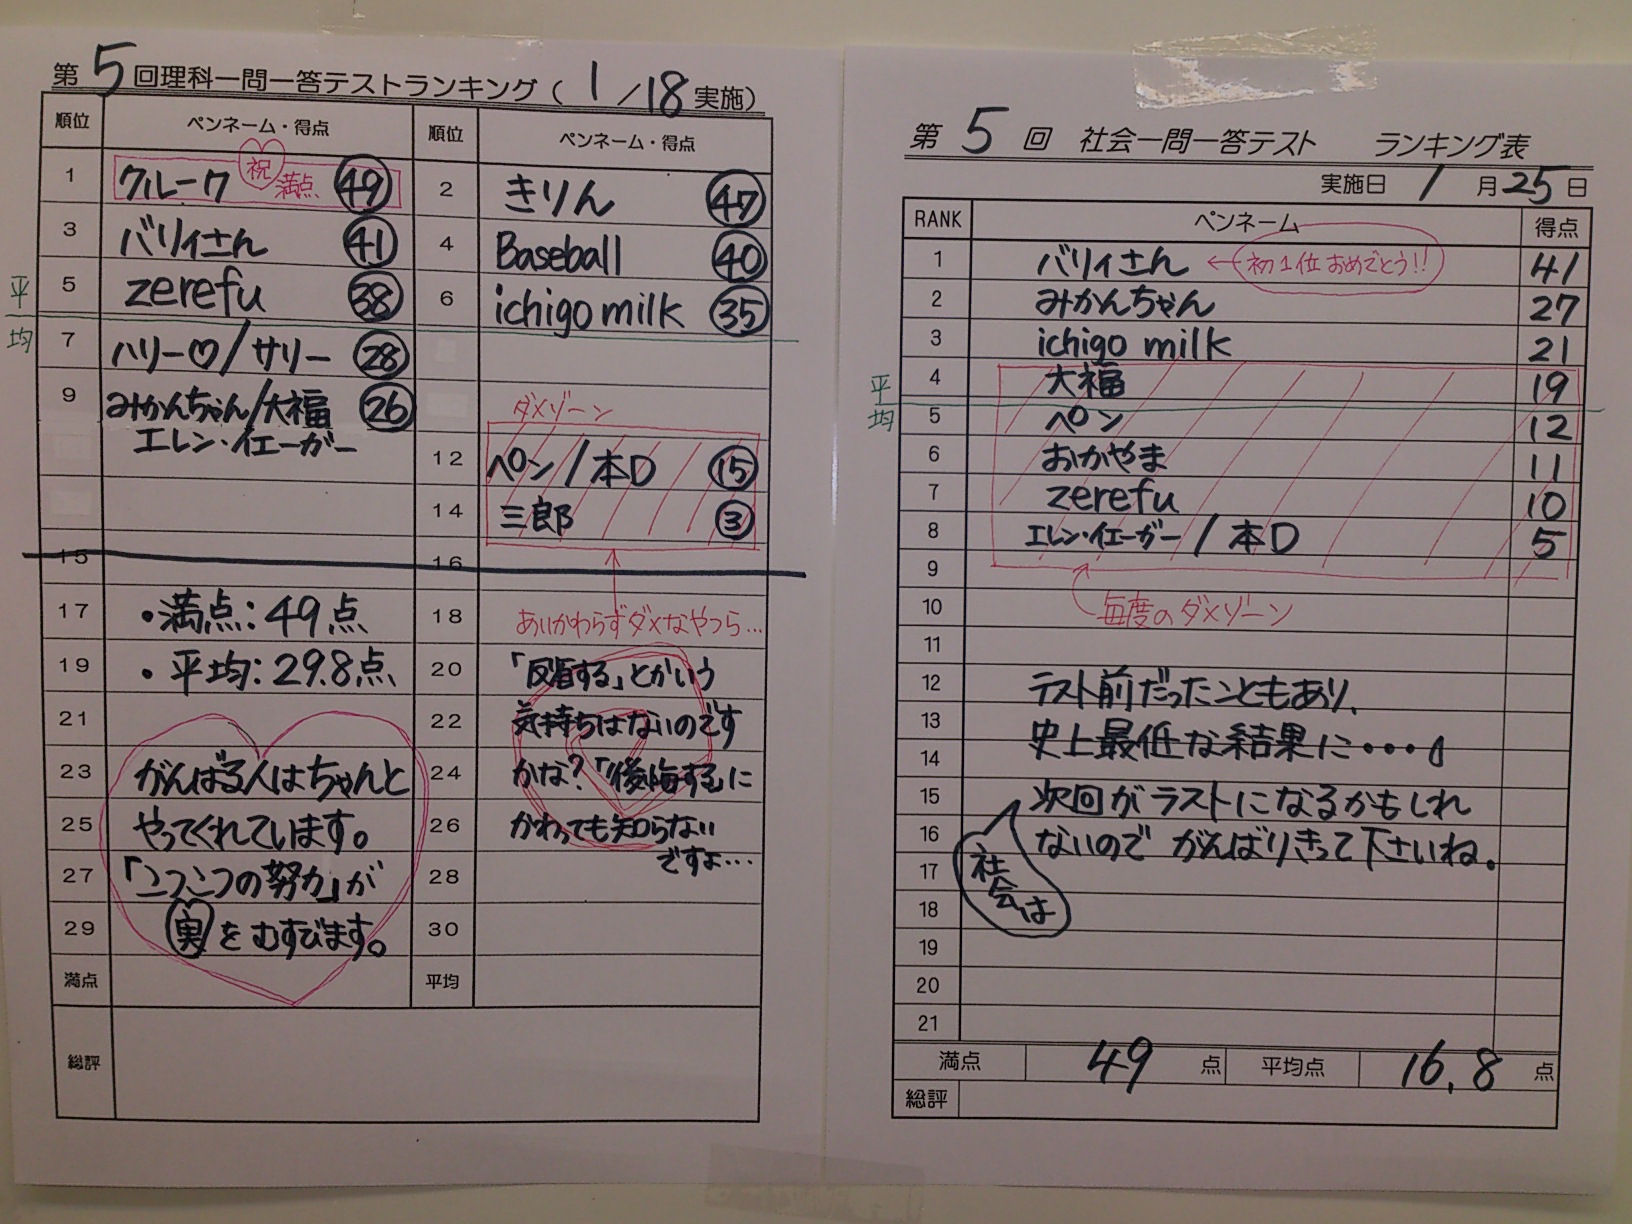 第5回理科一問一答テストランキング(1/18実施)
順位 ペンネーム・得点 順位 ペンネーム・得点
1 クルーク 祝 満点 49 2 きりん 47
3 バリィさん 41 4 Baseball 40
5 zerefu 38 6 ichigo milk 35
平均
7 ハリー♡/サリー 28
9 みかんちゃん/大福 26
エレン・イエーガー
ダメゾーン
12 ペン/本D 15
14 三郎 3
15 16
17 ・満点:49点 18 あいかわらずダメなやつら…
19 ・平均:29.8点 20 「反省する」とかいう
21 22 気持ちはないのです
23 がんばる人はちゃんと 24 かな?「後悔する」に
25 やってくれています。 26 かわっても知らない
ですよ…
27 「こつこつの努力」が 28
29 実をむすびます。 30
満点 平均
総評
第5回 社会一問一答テスト ランキング表
実施日 1月25日
RANK ペンネーム 得点
1 バリィさん ←初1位おめでとう!! 41
2 みかんちゃん 27
3 ichigo milk 21
4 大福 19
平均
5 ペン 12
6 おかやま 11
7 zerefu 10
8 エレン・イエーガー/本D 5
9
10 毎度のダメゾーン
11
12 テスト前だったこともあり、
13 史上最低な結果に・・・
14
15 次回がラストになるかもしれ
16 ないので がんばりきって下さいね。
17 社会は
18
19
20
21
満点 49点 平均点 16.8点
総評